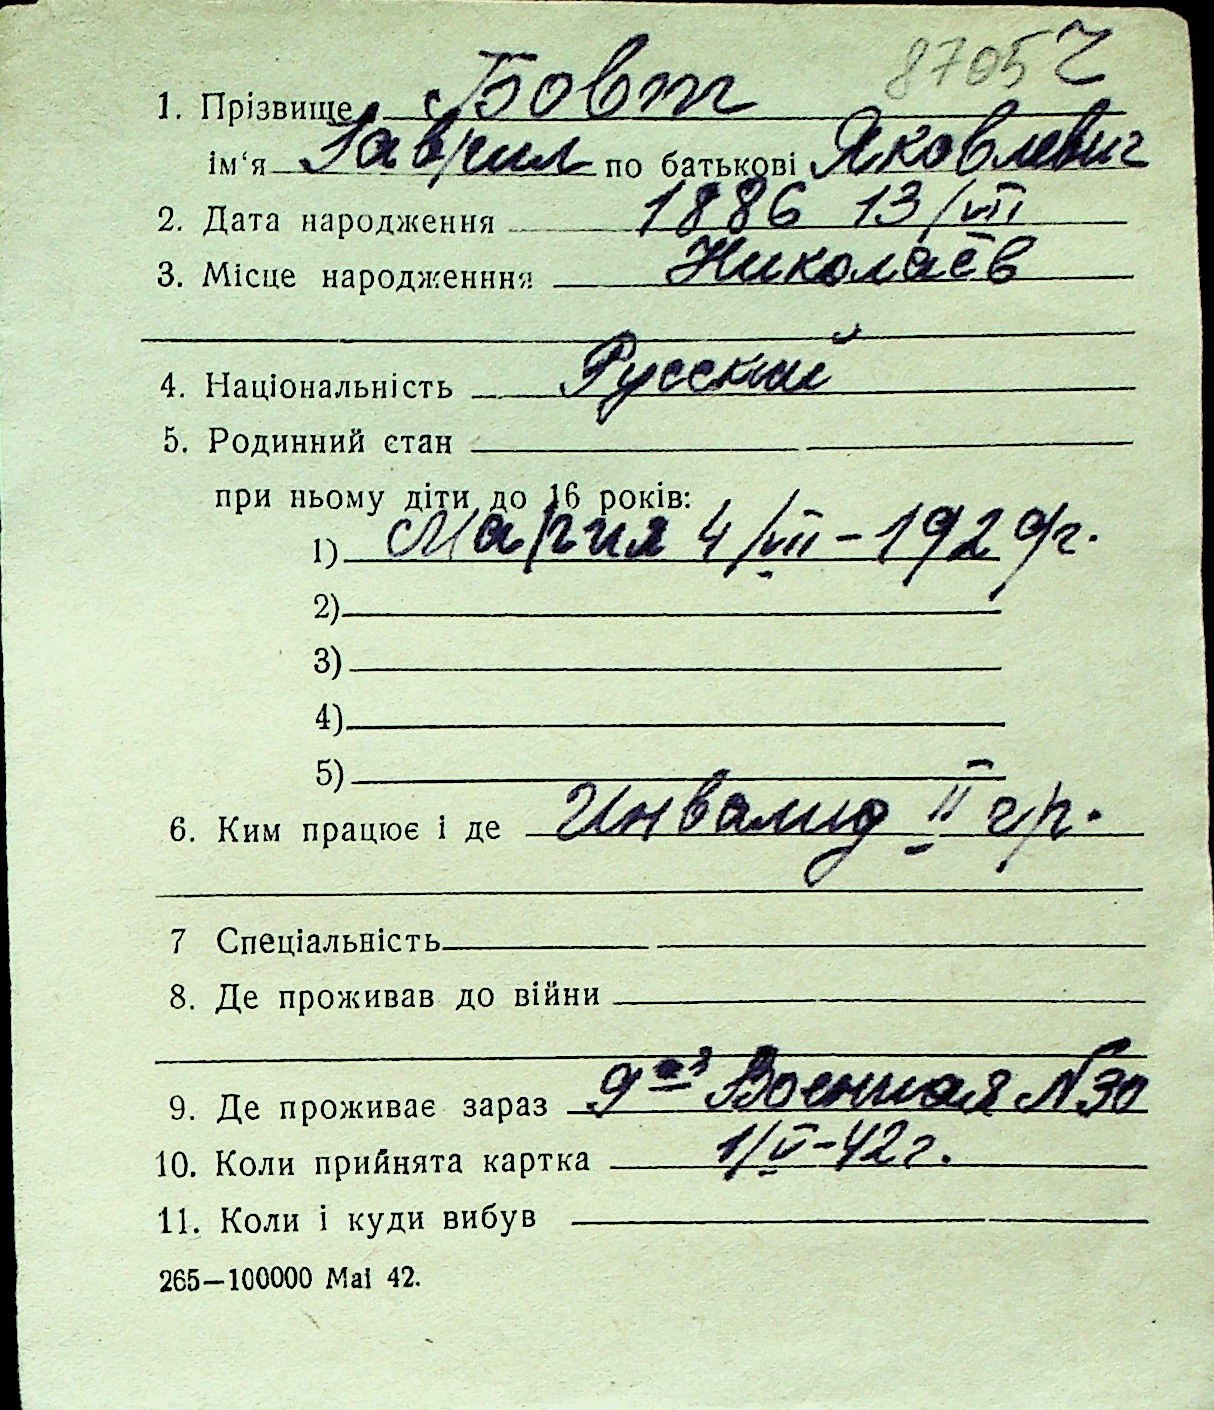 8705 Ч
1. Прізвище Бовт
ім‘я Гаврил по батькові Яковлевич
2. Дата народження 1886 13/VII
3. Місце народженння Николаев
4. Національність Русский
5. Родинний стан
при ньому діти до 16 років:
1) Мария 4/VII-1929г.
2)
3)
4)
5)
6. Ким працює і де Инвалид II гр.
7 Спеціальність
8. Де проживав до війни
9. Де проживає зараз 9ая Военная N 30
10. Коли прийнята картка 1/V-42г.
11. Коли і куди вибув
265—100000 Mai 42.